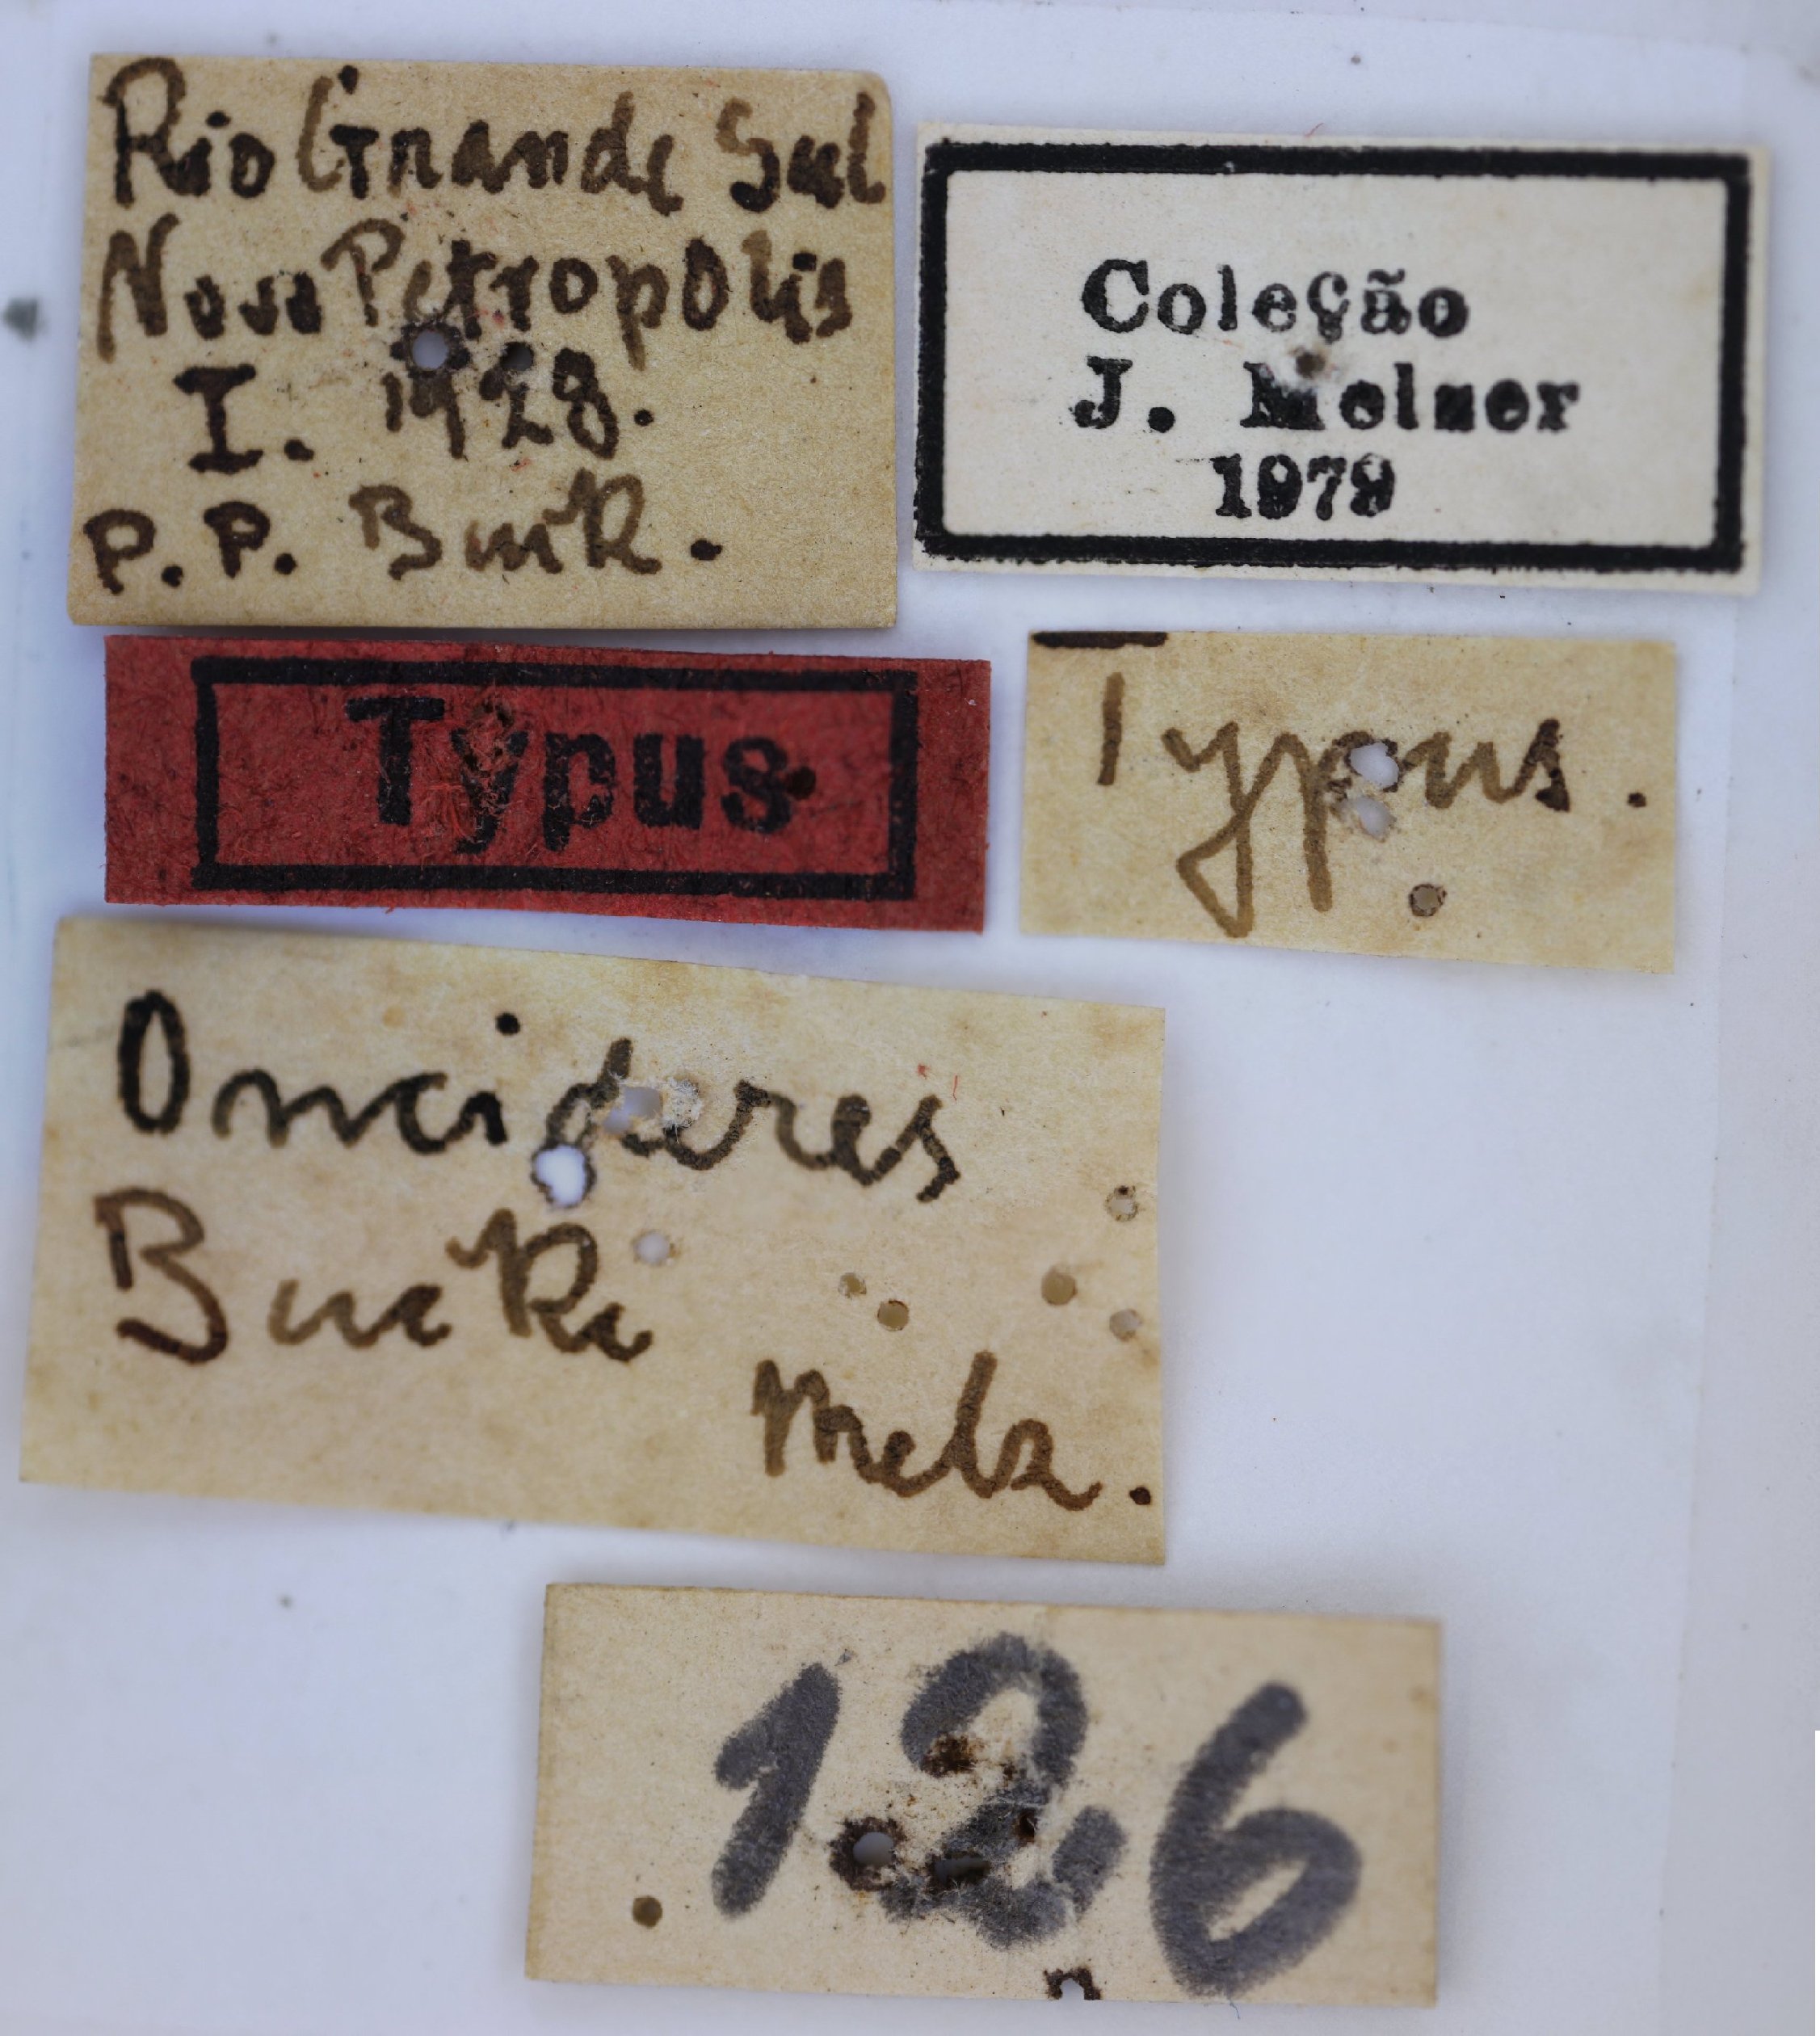 Rio Grande Sul
Nova Petropolis
I. 1928.
P.P. Buck.
Coleção
J. Melzer
1979
Typus
Typus.
Oncideres
Bucki
Melz.
126